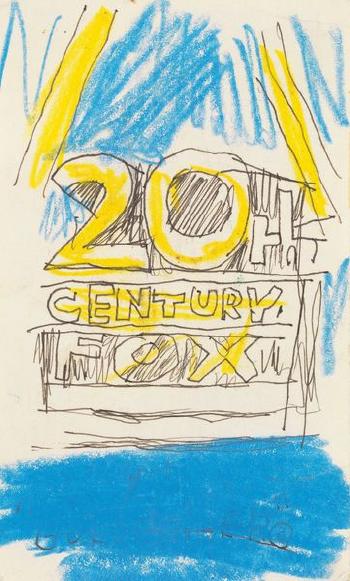 20th
CENTURY
FOX